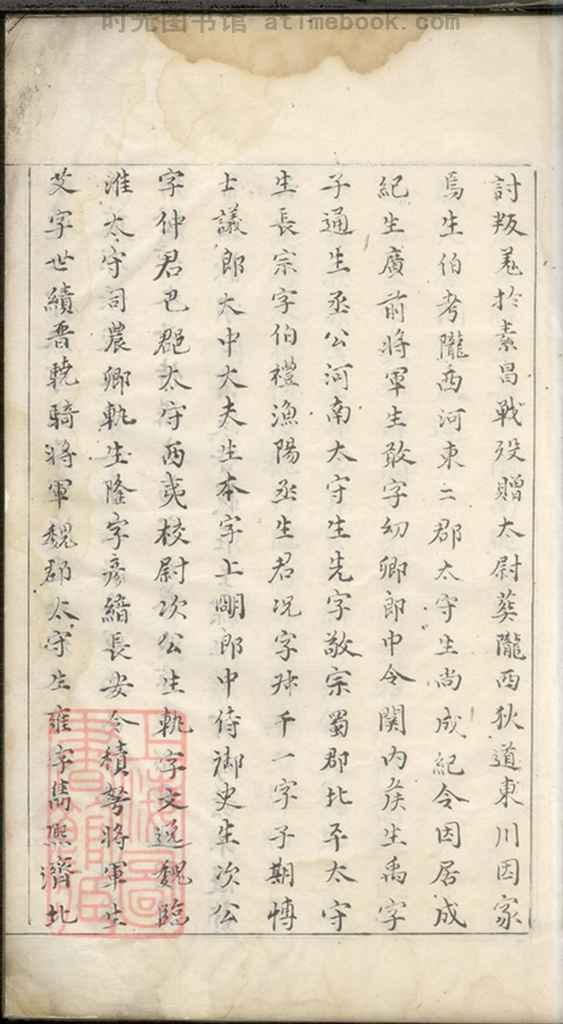 时光图书馆 atimebook.com
討叛羌於素昌戰歿贈太尉葬隴西狄道東川因家
焉生伯考隴西河東二郡太守生尚成紀令因居成
紀生廣前將軍生敢字幼卿郎中令関内矦生禹字
子通生丞公河南太守生先字敬宗蜀郡北平太守
生長宗字伯禮漁陽丞生君况字叔干一字子期博
士議郎大中大夫生本字上明郎中侍御史生次公
字仲君巴郡太守西夷校尉次公生軌字文逸魏臨
淮太守司農卿軌生隆字彦緇長安令積弩將軍生
艾字世績晋驍騎將軍魏郡太守生雍字雋熙濟北